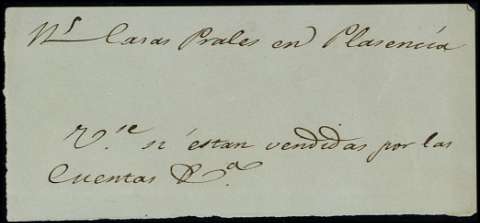 Ns Casas Prales en Plasencia
Vse si estan vendidas por las
Cuentas &a